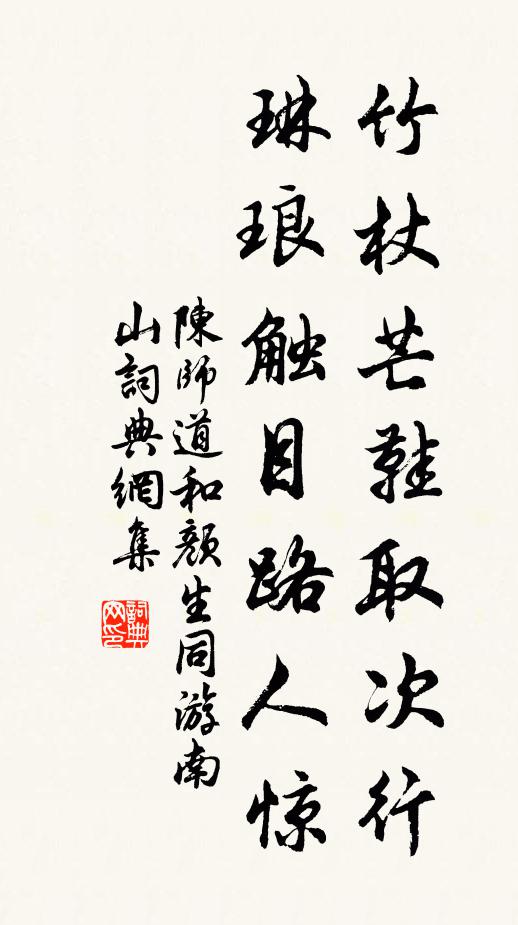 竹杖芒鞋取次行
琳琅触目路人惊
陳師道和顏生同游南
山詞典網集
詞典网印